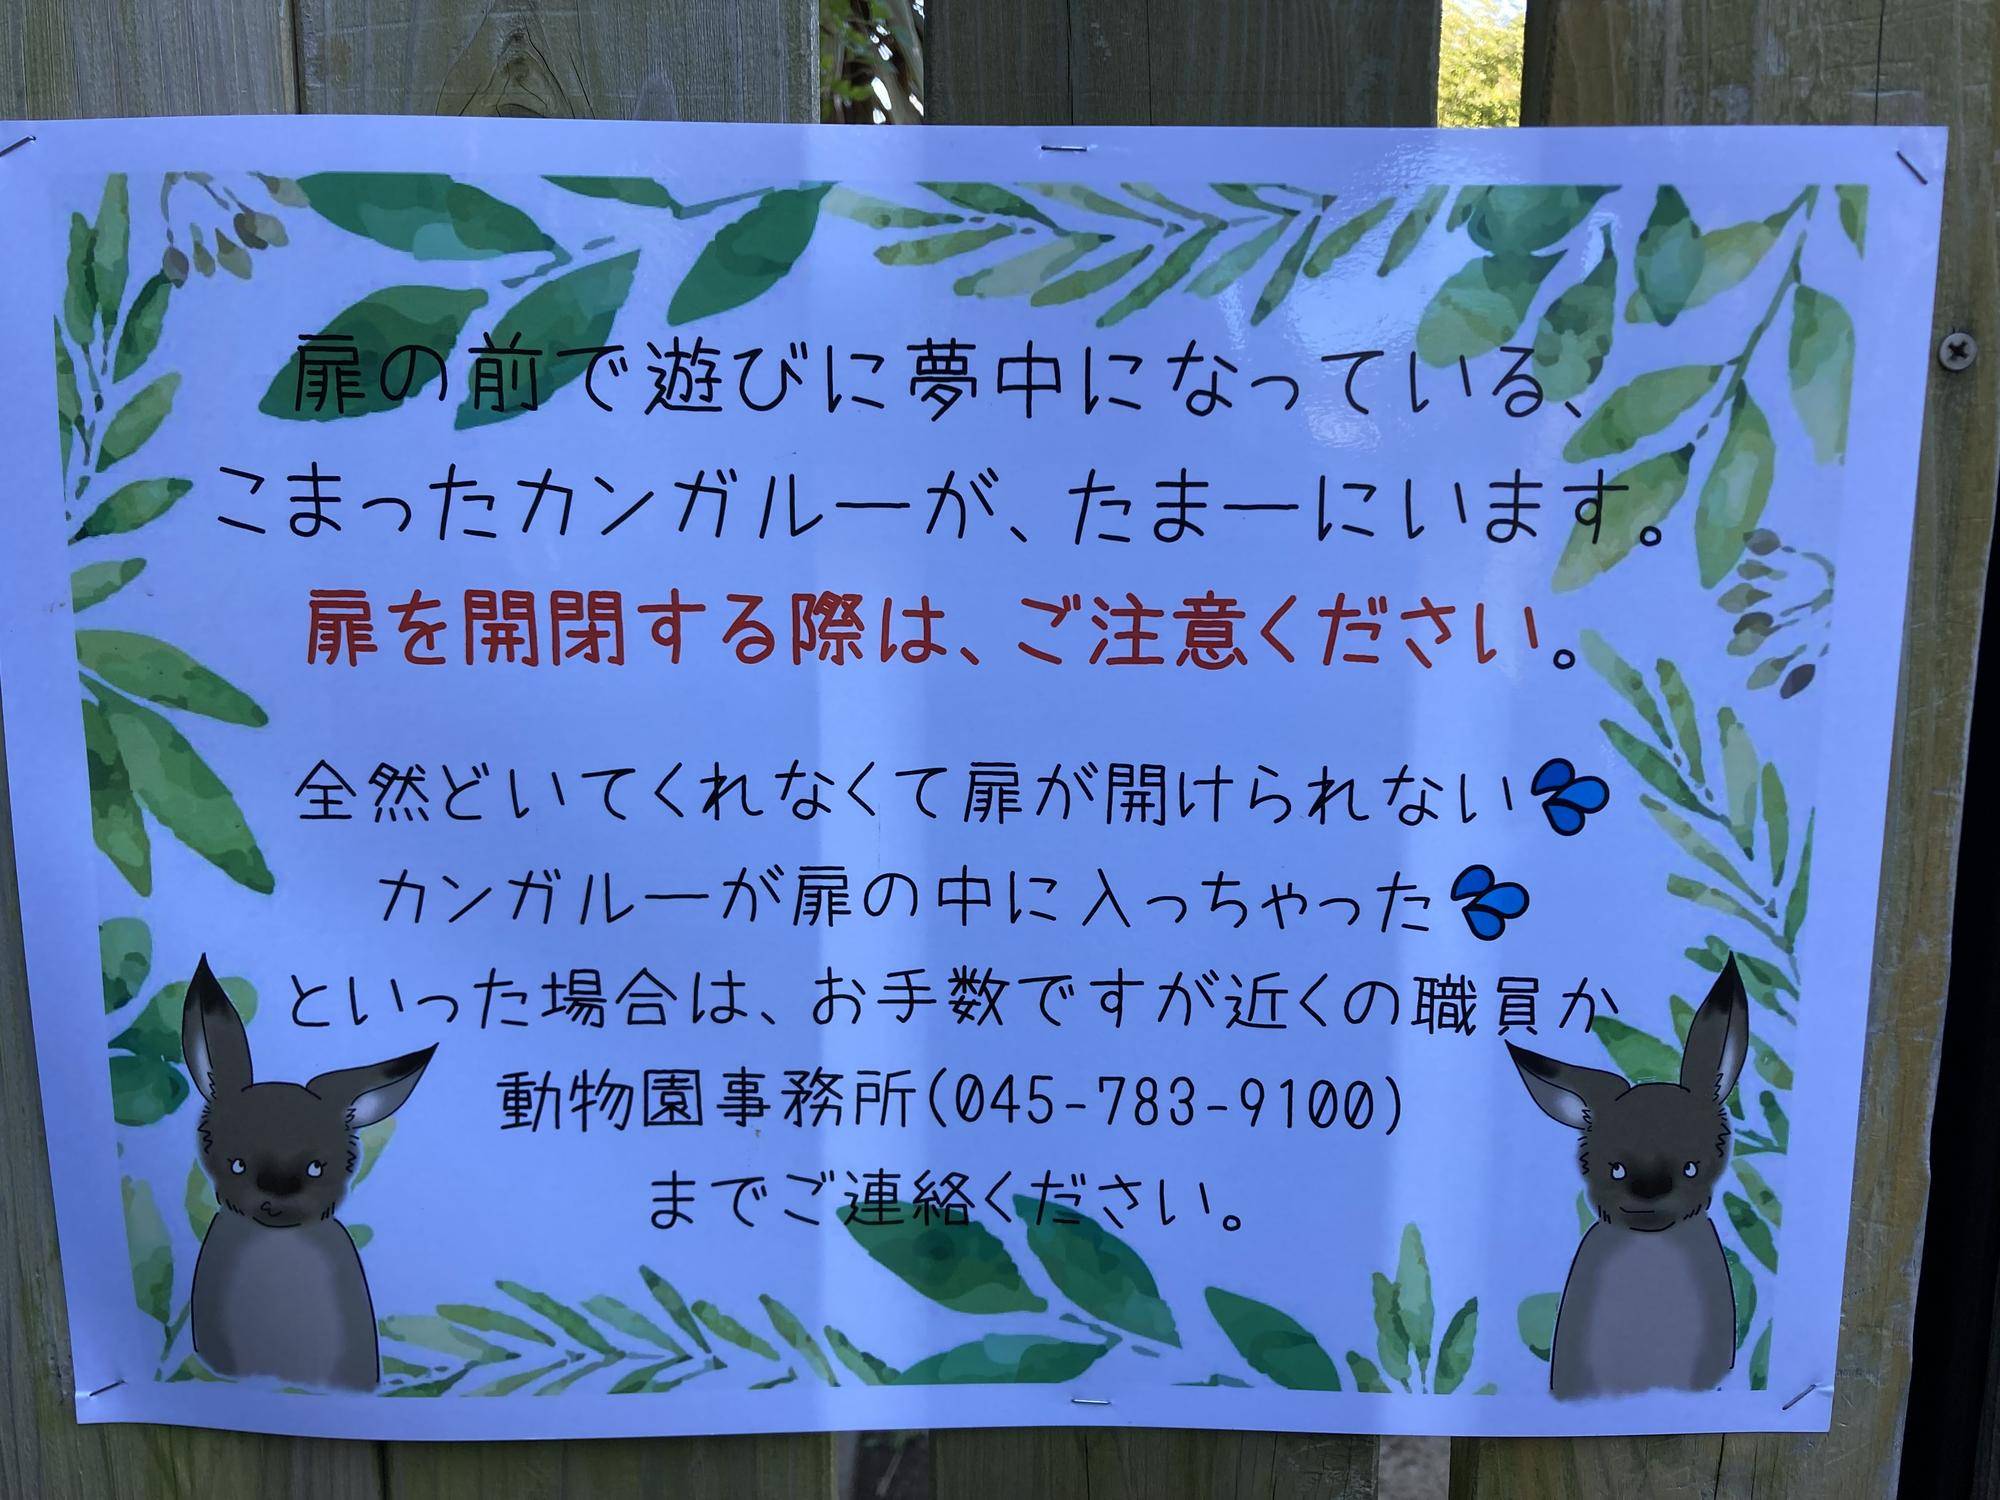 扉の前で遊びに夢中になっている、
こまったカンガルーが、たまーにいます。
扉を開閉する際は、ご注意ください。
全然どいてくれなくて扉が開けられない💦
カンガルーが扉の中に入っちゃった💦
といった場合は、お手数ですが近くの職員か
動物園事務所(045-783-9100)
までご連絡ください。